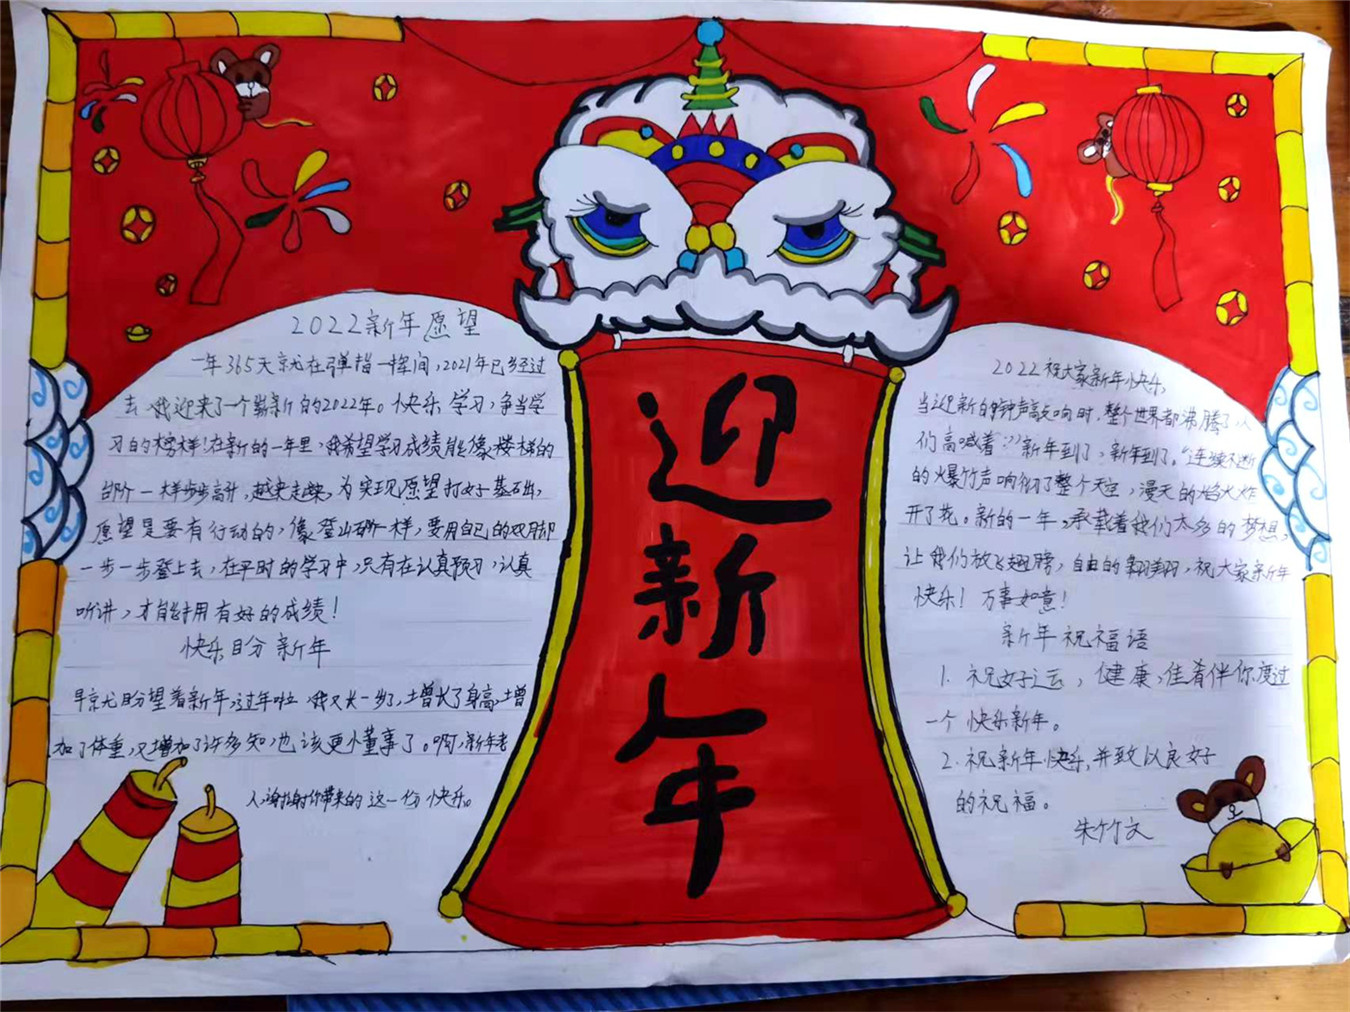 2022新年愿望
一年365天就在弹指一挥间，2021年已经过
去，我迎来了一个崭新的2022年。快乐学习，争当学
习的榜样！在新的一年里，我希望学习成绩能像楼梯的
台阶一样步步高升，越来越棒，为实现愿望打好基础，
愿望是要有行动的，像登山阶一样，要用自己的双脚
一步一步登上去，在平时的学习中，只有在认真预习，认真
听讲，才能有好的成绩！
快乐盼新年
早就盼望着新年，过年啦，我又长一岁了，增长了身高，增
加了体重，又增加了许多知，也该更懂事了。啊，新年老
人，谢谢你带来的这一份快乐。
迎新年
2022祝大家新年快乐
当迎新的钟声敲响时，整个世界都沸腾了，人
们高喊着：“新年到了，新年到了。”连续不断
的爆竹声响彻了整个天空，漫天的焰火炸
开了花。新的一年，承载着我们太多的梦想，
让我们放飞翅膀，自由的翱翔，祝大家新年
快乐！万事如意！
新年祝福语
1.祝好运，健康，佳肴伴你度过
一个快乐新年。
2.祝新年快乐，并致以良好
的祝福。
朱竹文